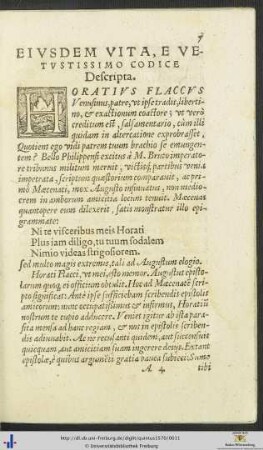 7
EIVSDEM VITA, E VE-
TVSTISSIMO CODICE
Descripta.
HORATIVS FLACCVS
Venusinus, patre, vt ipse tradit, liberti-
no, & exactionum coactore; vt verò
creditum est, salsamentario, cùm illi
quidam in altercatione exprobrasset,
Quotien ego vidi patrem tuum brachio se emungen-
tem? Bello Philippensi excitus à M. Bruto imperato-
re tribunus militum meruit, victisq́; partibus venia
impetrata, scriptum quæstorium comparauit, ac pri-
mò Mæcenati, mox Augusto insinuatus, non medio-
crem in amborum amicitia locum tenuit. Mæcenas
quantopere eum dilexerit, satis monstratur illo epi-
grammate:
Ni te visceribus meis Horati
Plus iam diligo, tu tuum sodalem
Nimio videas strigosiorem.
sed multo magis extremo, tali ad Augustum elogio.
Horati Flacci, vt mei, esto memor. Augustus episto-
larum quoq. ei officium obtulit. Hoc ad Mæcenatē scri-
pto significat: Ante ipse sufficiebam scribendis epistolis
amicorum: nunc occupatissimus & infirmus, Horatiū
nostrum te cupio adducere. Veniet igitur ab ista para-
sita mensa ad hanc regiam, & nos in epistolis scriben-
dis adiuuabit. Ac ne recusanti quidem, aut succensuit
quicquam, aut amicitiam suam ingerere desijt. Extant
epistolæ, è quibus argumēti gratia pauca subieci: Sume
A 4 tibi
http://dl.ub.uni-freiburg.de/diglit/quintus1576/0011
© Universitätsbibliothek Freiburg